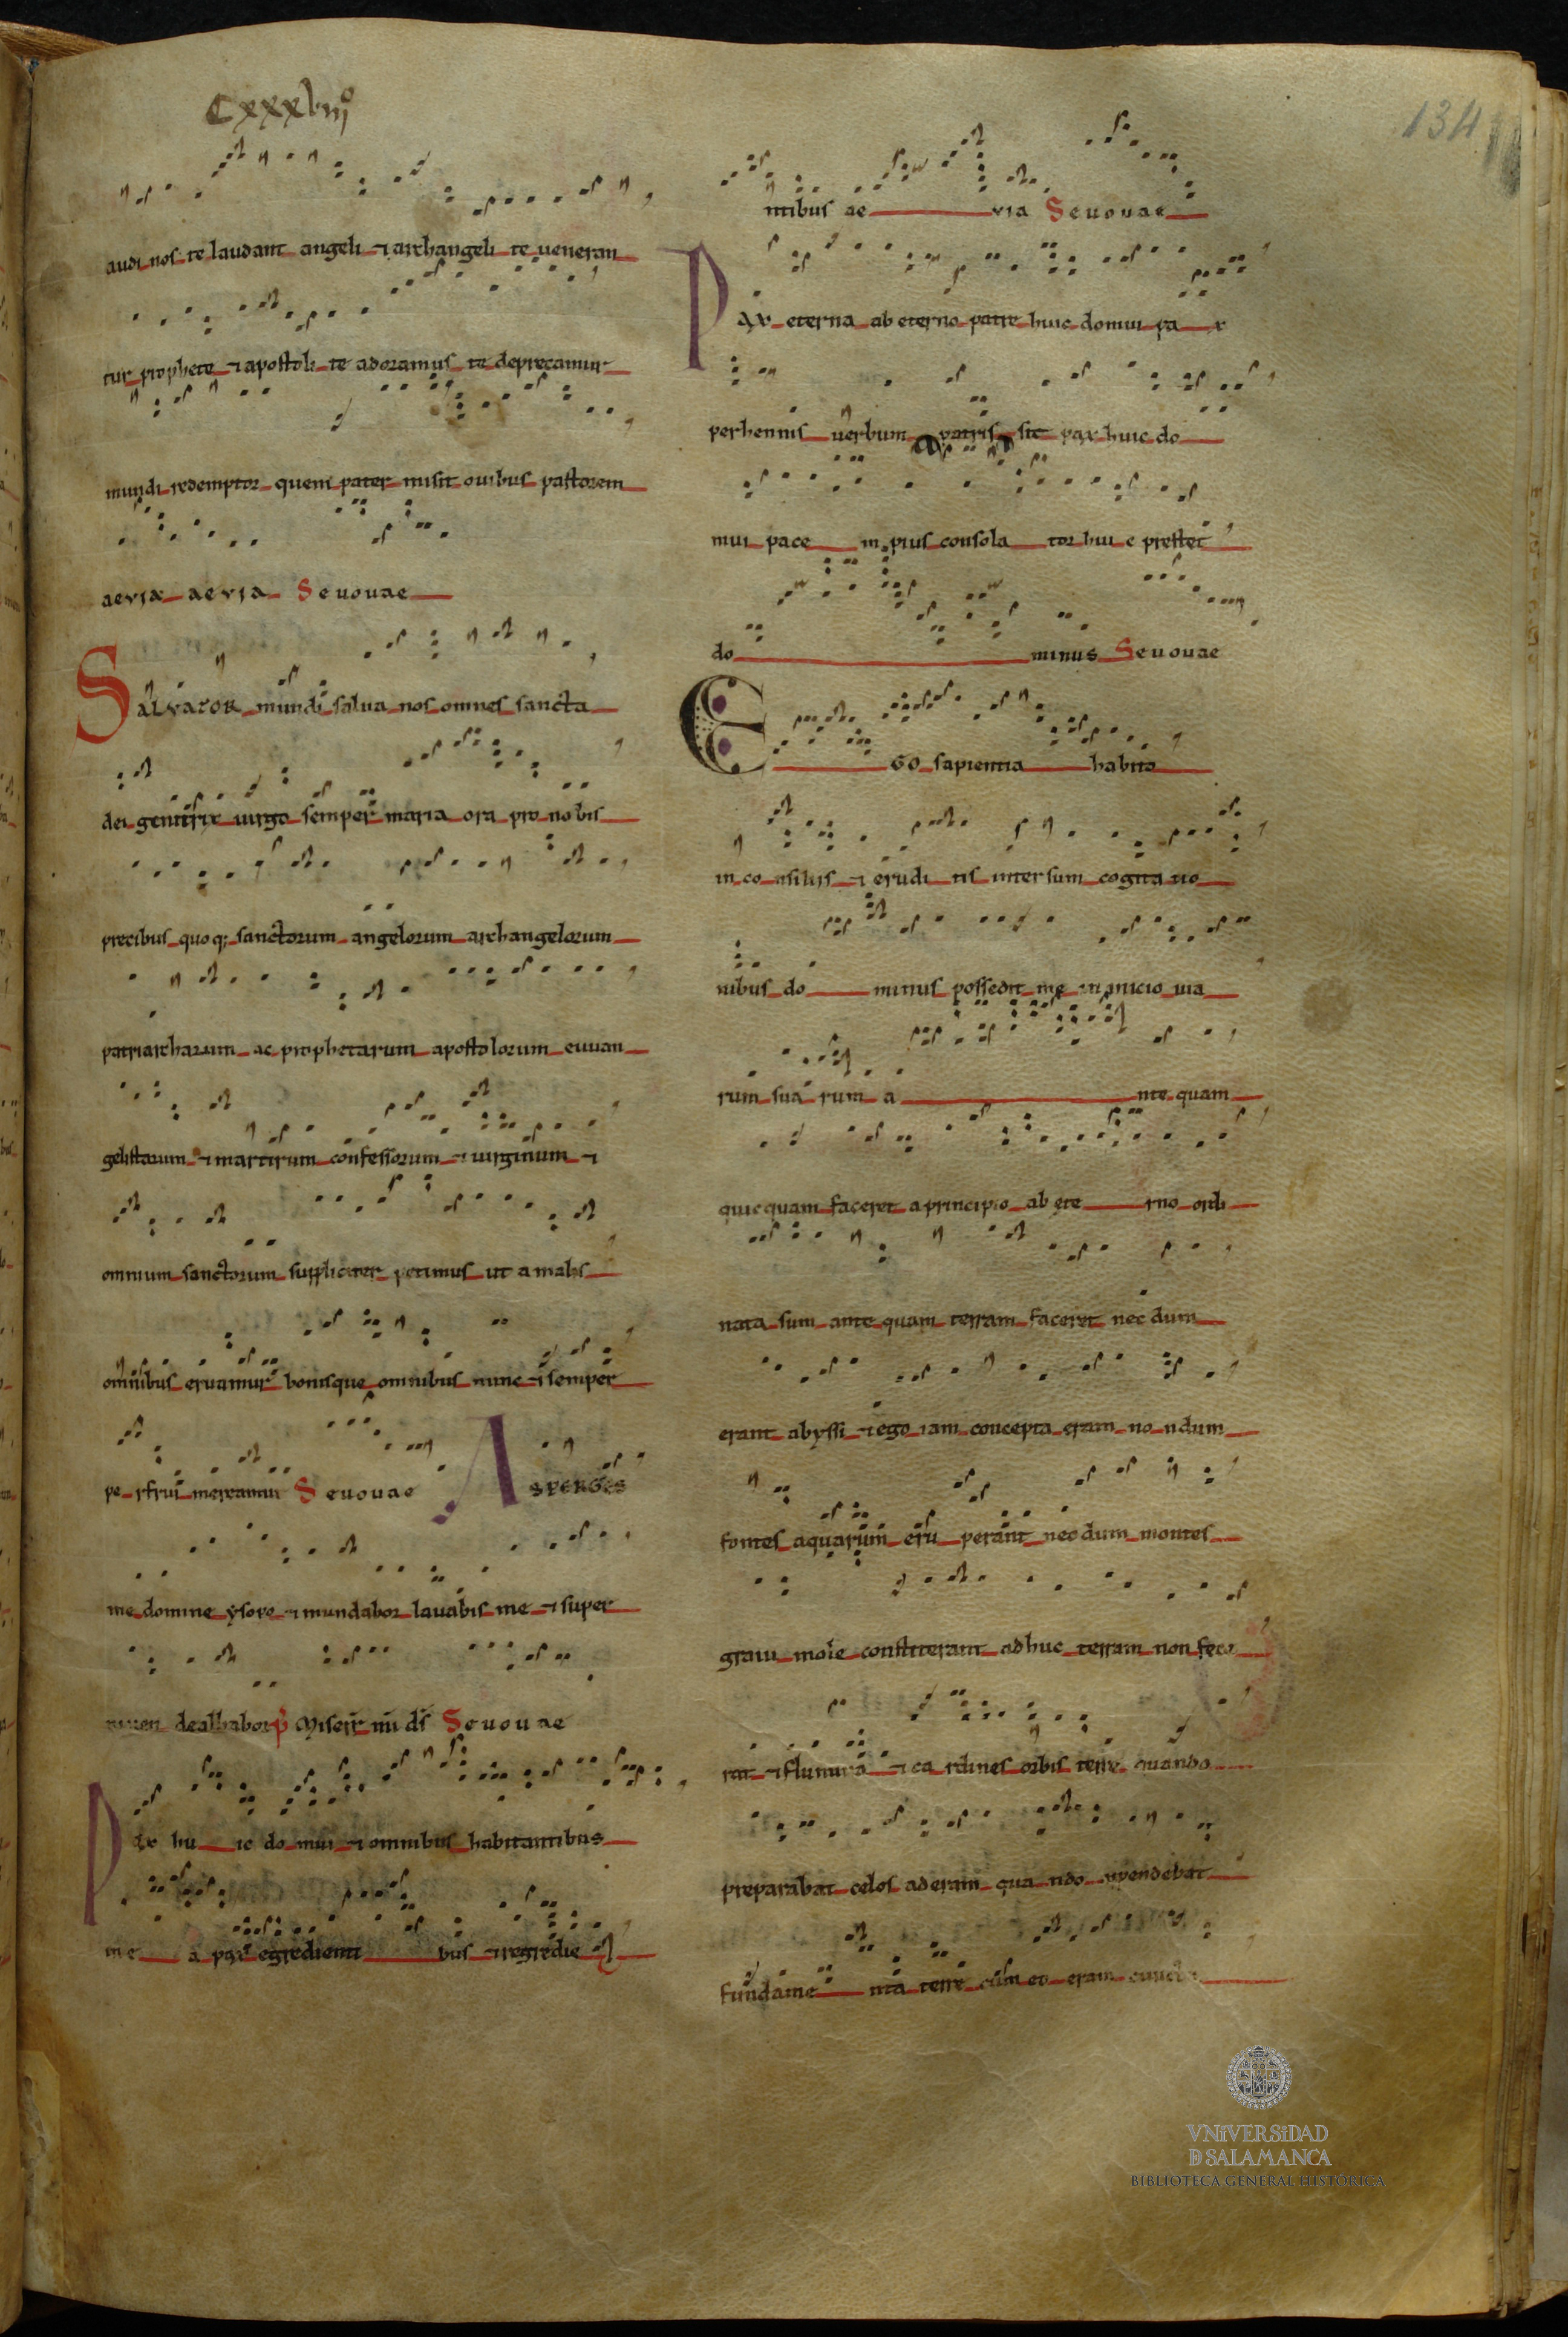 Cxxxviijº
134
audi nos te laudant angeli ⁊ archangeli te ueneran
tur prophete ⁊ apostoli te adoramus te deprecamur
mundi redemptor quem pater misit ouibus pastorem
aevia aevia Seuouae
Salvator mundi salua nos omnes sancta
dei genitrix uirgo semper maria ora pro nobis
precibus quoq; sanctorum angelorum archangelorum
patriarcharum ac prophetarum apostolorum euuan
gelistarum ⁊ martirum confessorum ⁊ uirginum ⁊
omnium sanctorum suppliciter petimus ut a malis
omnibus eruamur bonisque omnibus nunc ⁊ semper
perfrui mereamur Seuouae Asperges
me domine ysopo ⁊ mundabor lauabis me ⁊ super
niuen dealbabor p̄ Miserere mi ds̄ Seuouae
Pax huic domui ⁊ omnibus habitantibus
in e a pax egredienti bus ⁊ regredie
ntibus ae via Seuouae
Pax eterna ab eterno patre huic domui pax
perhennis uerbum patris sit pax huic do
mui pace m pius consolator huic prestet
do minus Seuouae
Ego sapientia habito
in consiliis ⁊ eruditis intersum cogitatio
nibus dominus possedit me in inicio uia
rum suarum a nte quam
quicquam faceret a principio ab eterno ordi
nata sum ante quam terram faceret necdum
erant abyssi ⁊ ego iam concepta eram nondum
fontes aquarum eruperant necdum montes
graui mole constiterant adhuc terram non fece
rat ⁊ flumina ⁊ cardines orbis terre quando
preparabat celos aderam quando appendebat
fundamenta terre cum eo eram cuncta
VNIVERSIDAD
D SALAMANCA
BIBLIOTECA GENERAL HISTÓRICA